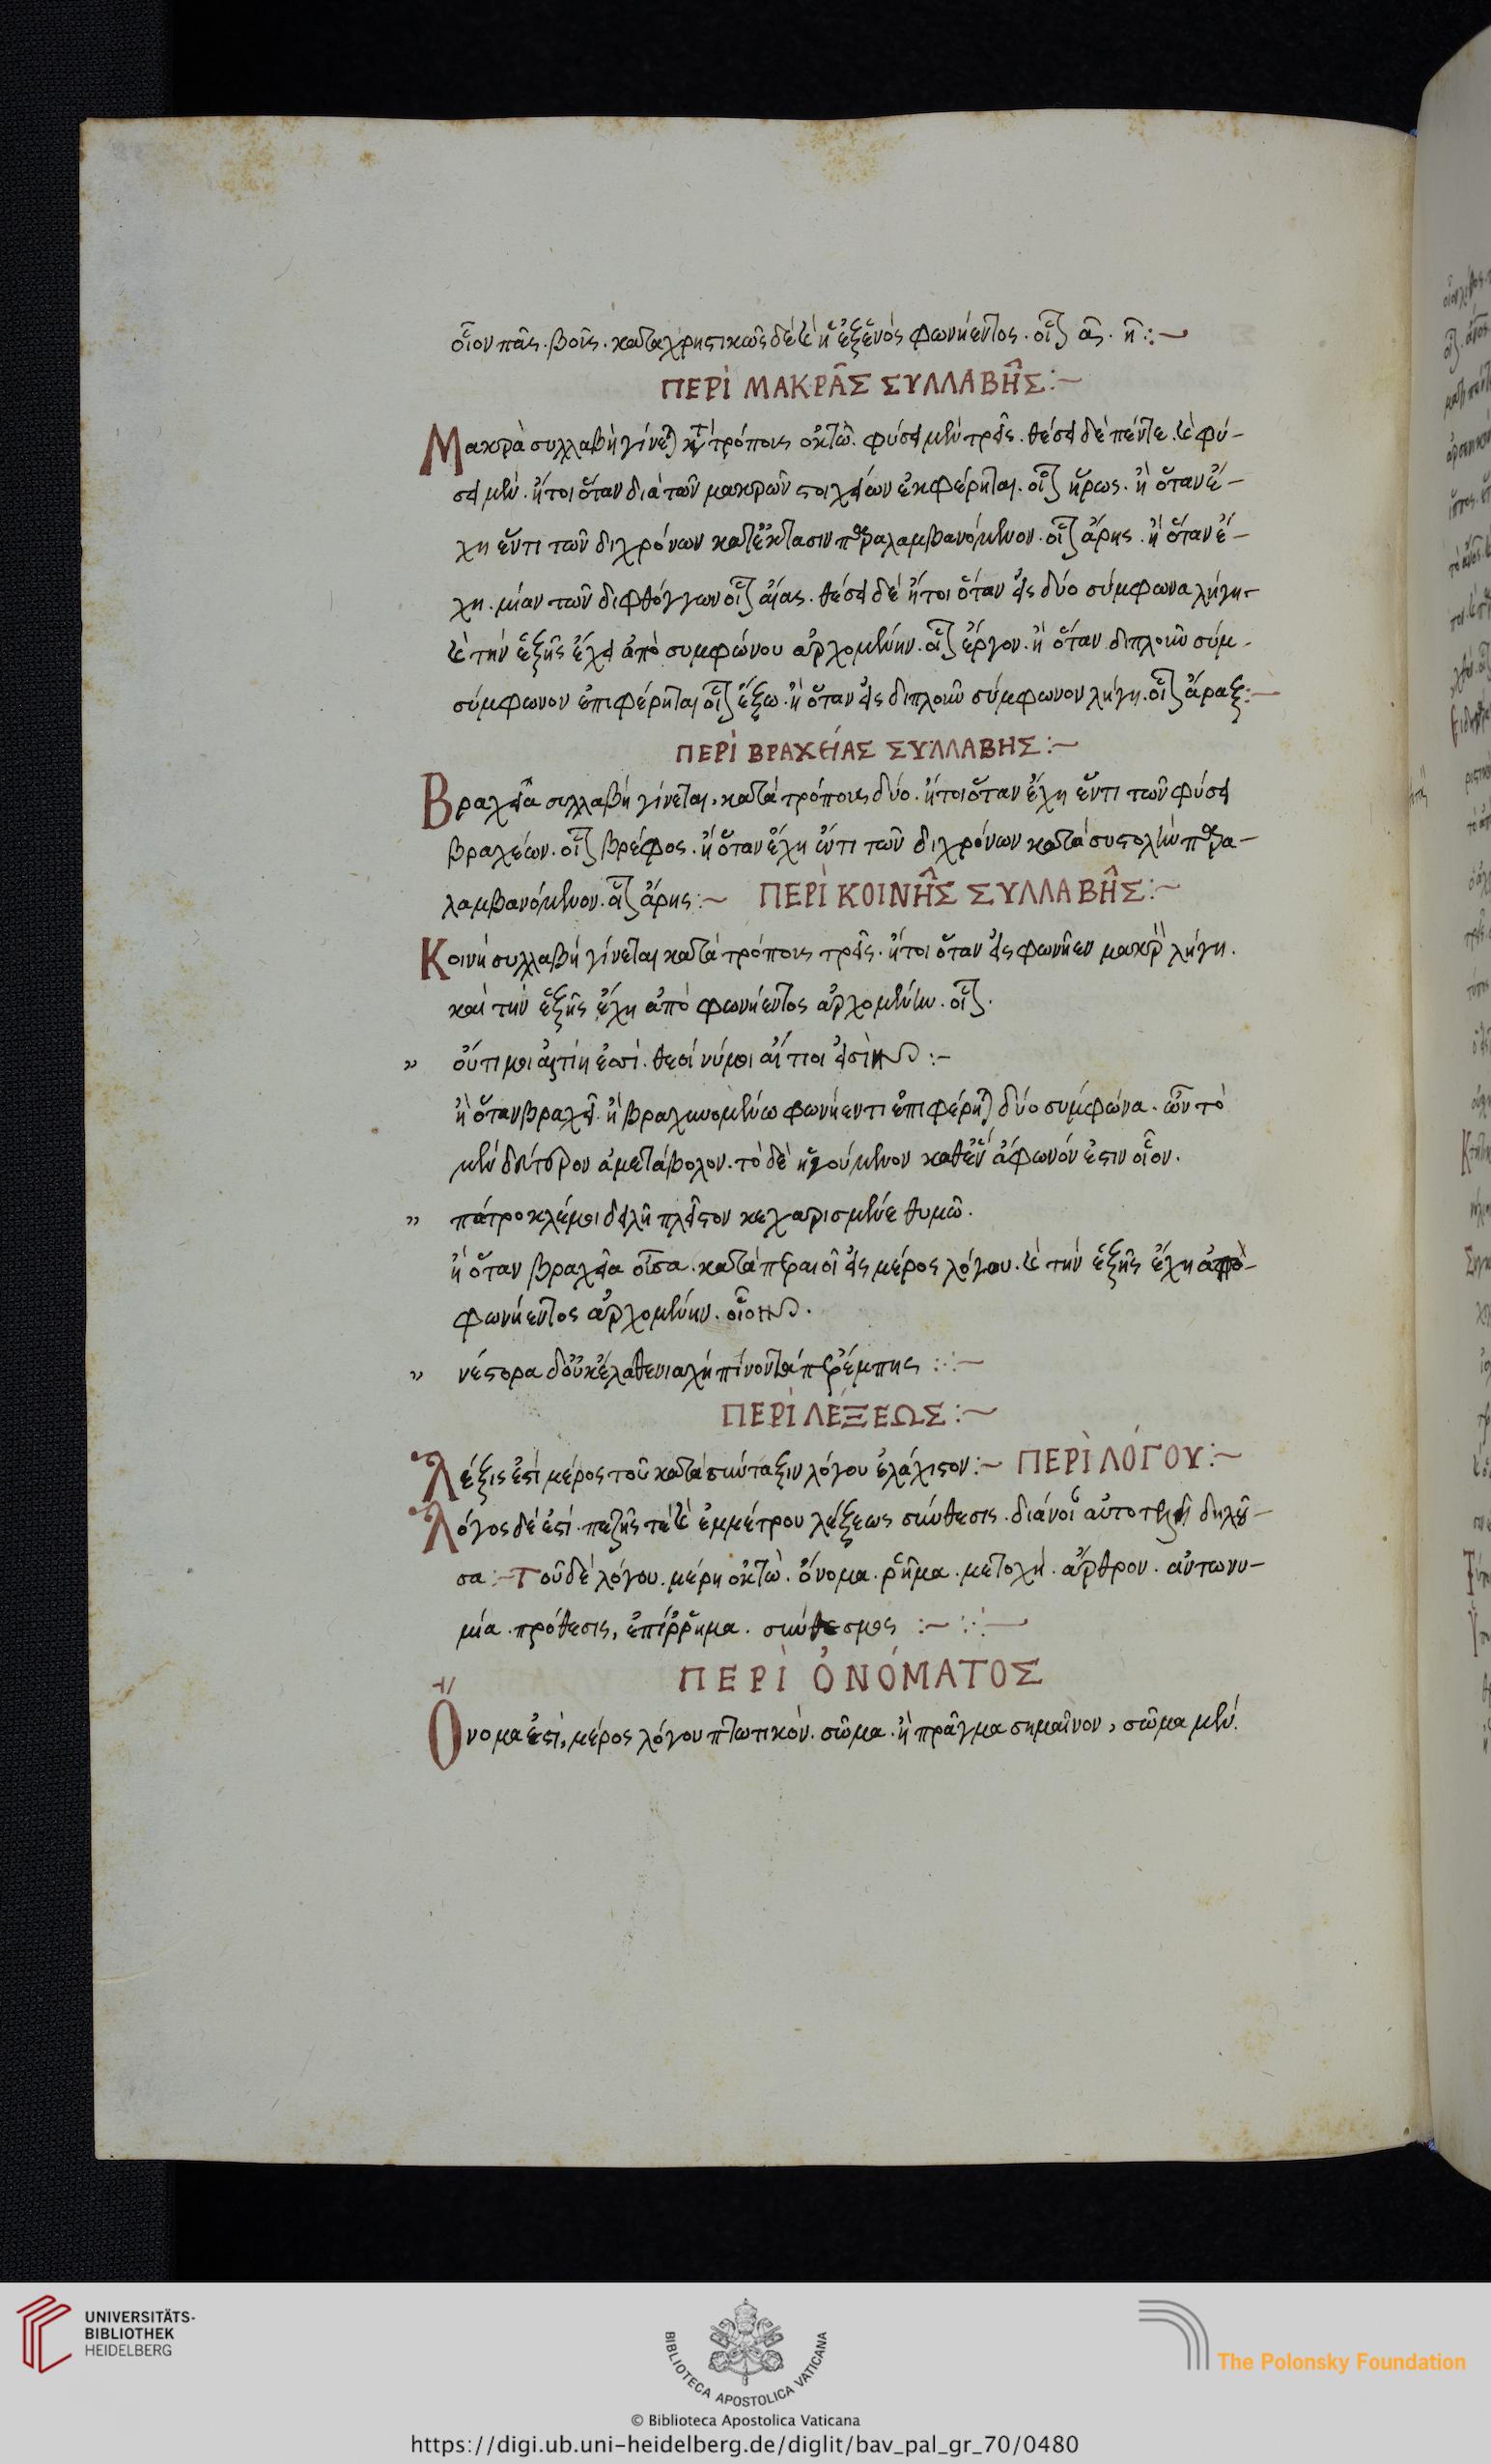 οἷον πᾶς. βοῦς. καταχρηστικῶς δὲ καὶ ἡ ἐξ ἑνὸς φωνήεντος. οἷον ᾱ. η̄ :~
ΠΕΡῚ ΜΑΚΡΑ͂Σ ΣΥΛΛΑΒΗ͂Σ :~
Μακρὰ συλλαβὴ γίνεται κατὰ τρόπους ὀκτώ. φύσει μὲν τρεῖς. θέσει δὲ πέντε. καὶ φύ-
σει μὲν. ἤτοι ὅταν διὰ τῶν μακρῶν στοιχείων ἐκφέρηται. οἷον ἥρως. ἢ ὅταν ἔ-
χη ἕν τι τῶν διχρόνων κατ' ἔκτασιν παραλαμβανόμενον. οἷον ἄρης. ἢ ὅταν ἔ-
χη. μίαν τῶν διφθόγγων οἷον αἴας. θέσει δὲ ἤτοι ὅταν εἰς δύο σύμφωνα λήγη-
καὶ τὴν ἑξῆς ἔχει ἀπὸ συμφώνου ἀρχομένην. οἷον ἔργον. ἢ ὅταν διπλοῦν σύμ-
σύμφωνον ἐπιφέρηται οἷον ἔξω. ἢ ὅταν εἰς διπλοῦν σύμφωνον λήγη. οἷον ἄραξ :~
ΠΕΡῚ ΒΡΑΧΕΊΑΣ ΣΥΛΛΑΒΗΣ :~
Βραχεῖα συλλαβὴ γίνεται. κατὰ τρόπους δύο. ἤτοι ὅταν ἔχη ἕν τι τῶν φύσει
βραχέων. οἷον βρέφος. ἢ ὅταν ἔχη ἕν τι τῶν διχρόνων κατὰ συστολὴν παρα-
λαμβανόμενον. οἷον ἄρης :~ ΠΕΡῚ ΚΟΙΝΗ͂Σ ΣΥΛΛΑΒΗ͂Σ :~
Κοινὴ συλλαβὴ γίνεται κατὰ τρόπους τρεῖς. ἤτοι ὅταν εἰς φωνῆεν μακρὸν λήγη.
καὶ τὴν ἑξῆς ἔχη ἀπὸ φωνήεντος ἀρχομένην. οἷον.
" οὔτι μοι αἰτίη ἐσσί. θεοί νύ μοι αἴτιοι εἰσὶν :~
ἢ ὅταν βραχεῖ. ἢ βραχυνομένω φωνήεντι ἐπιφέρηται δύο σύμφωνα. ὧν τὸ
μὲν δεύτερον ἀμετάβολον. τὸ δὲ ἡγούμενον καθ' ἓν ἄφωνόν ἐστιν οἷον.
" πάτροκλέ μοι δειλῆ πλεῖστον κεχαρισμένε θυμῶ.
ἢ ὅταν βραχεῖα οὖσα. καταπεραιοῖ εἰς μέρος λόγου. καὶ τὴν ἑξῆς ἔχη ἀπὸ-
φωνήεντος ἀρχομένην. οἷον.
" νέστορα δ' οὐκ ἔλαθεν ἰαχὴ πίνοντά περ ἔμπης :~
ΠΕΡῚ ΛΈΞΕΩΣ :~
Λέξις ἐστὶ μέρος τοῦ κατὰ σύνταξιν λόγου ἐλάχιστον :~ ΠΕΡῚ ΛΌΓΟΥ :~
Λόγος δέ ἐστι. πεζῆς τὲ καὶ ἐμμέτρου λέξεως σύνθεσις. διάνοιαν αὐτοτελῆ δηλοῦ-
σα :~ Τοῦ δὲ λόγου. μέρη ὀκτώ. ὄνομα. ῥῆμα. μετοχή. ἄρθρον. ἀντωνυ-
μία. πρόθεσις, ἐπίρρημα. σύνδεσμος :~
ΠΕΡῚ ὈΝΌΜΑΤΟΣ
Ὄνομα ἐστὶ, μέρος λόγου πτωτικὸν. σῶμα. ἢ πρᾶγμα σημαῖνον, σῶμα μὲν.
UNIVERSITÄTS-
BIBLIOTHEK
HEIDELBERG
BIBLIOTECA APOSTOLICA VATICANA
The Polonsky Foundation
© Biblioteca Apostolica Vaticana
https://digi.ub.uni-heidelberg.de/diglit/bav_pal_gr_70/0480